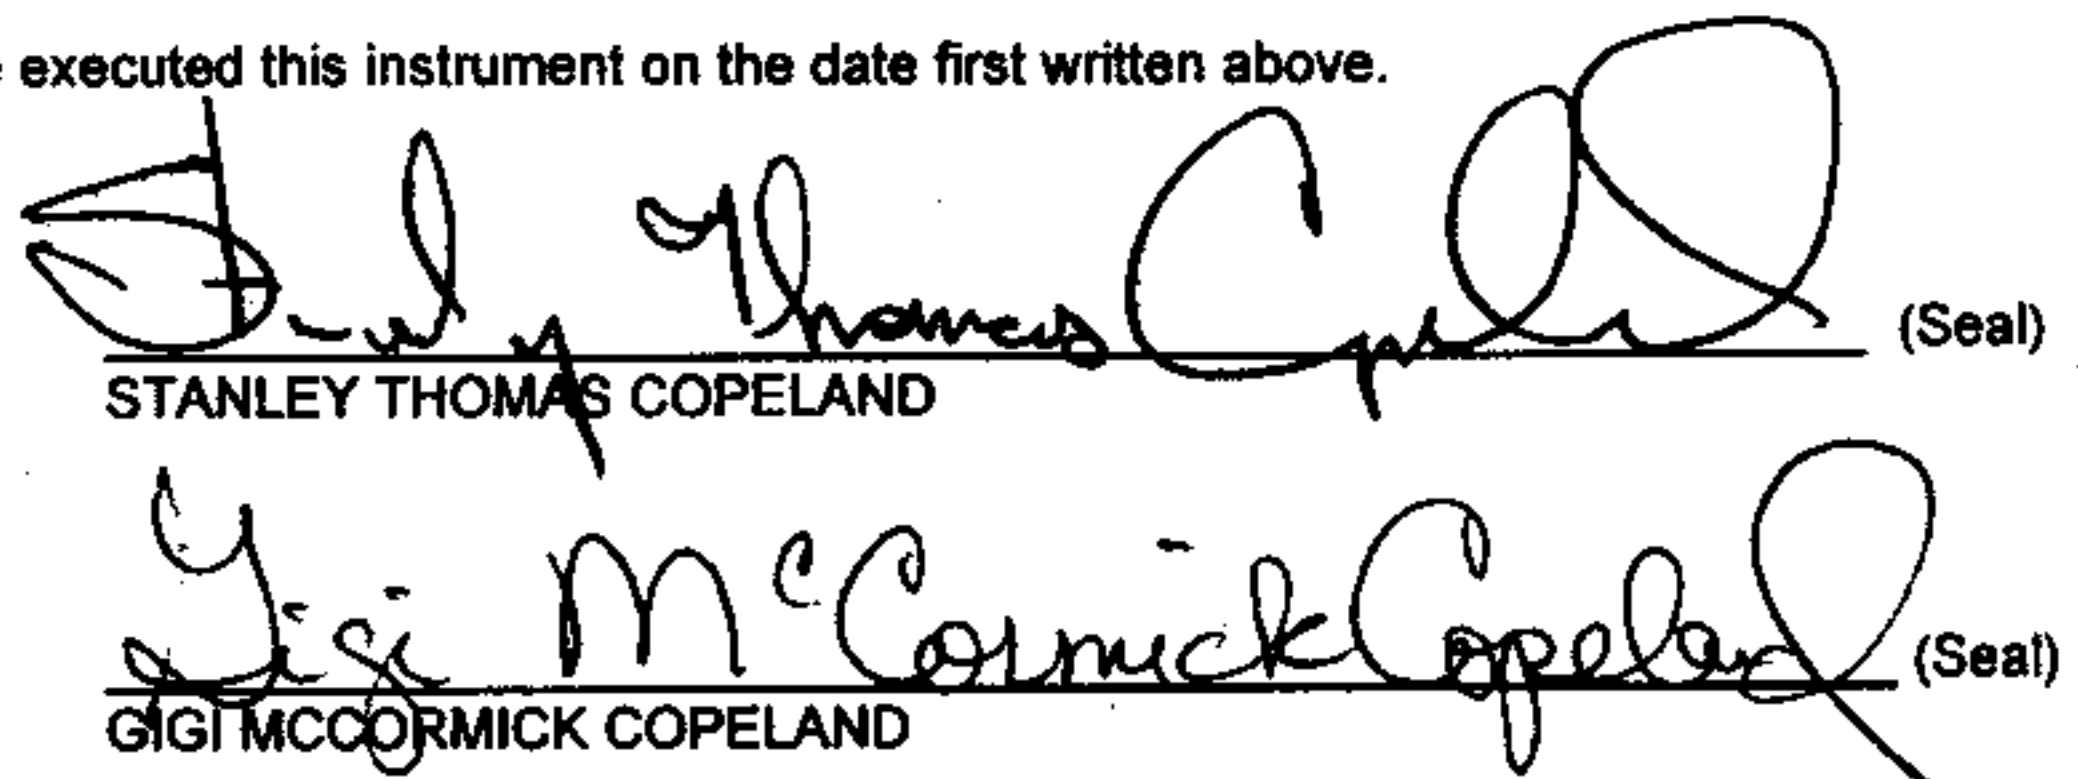 executed this instrument on the date first written above.
Stanley Thomas Copeland (Seal)
STANLEY THOMAS COPELAND
Gigi McCormick Copeland (Seal)
GIGI MCCORMICK COPELAND